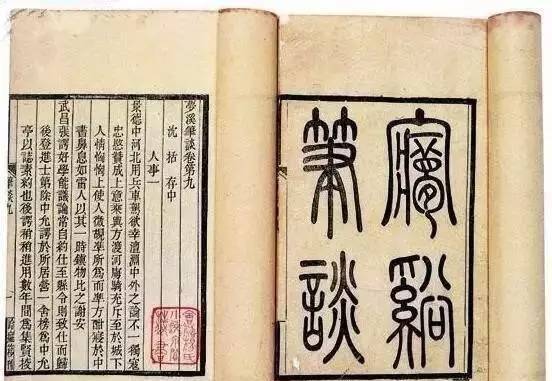 夢谿
筆談
夢溪筆談卷第九
沈括存中
人事一
景德中河北用兵車駕欲幸澶淵中外之論不一獨寇
忠愍贊成上意乘輿方渡河虜騎充斥至於城下
人情恟恟上使人微覘準所為而準方酣寢於中
書鼻息如雷人以其一時鎮物比之謝安
武昌張諤好學能議論常自約仕至縣令則致仕而歸
後登進士第除中允諤於所居營一舍榜為中允
亭以誌素約也後諤稍稍進用數年間為集賢校
筆談九